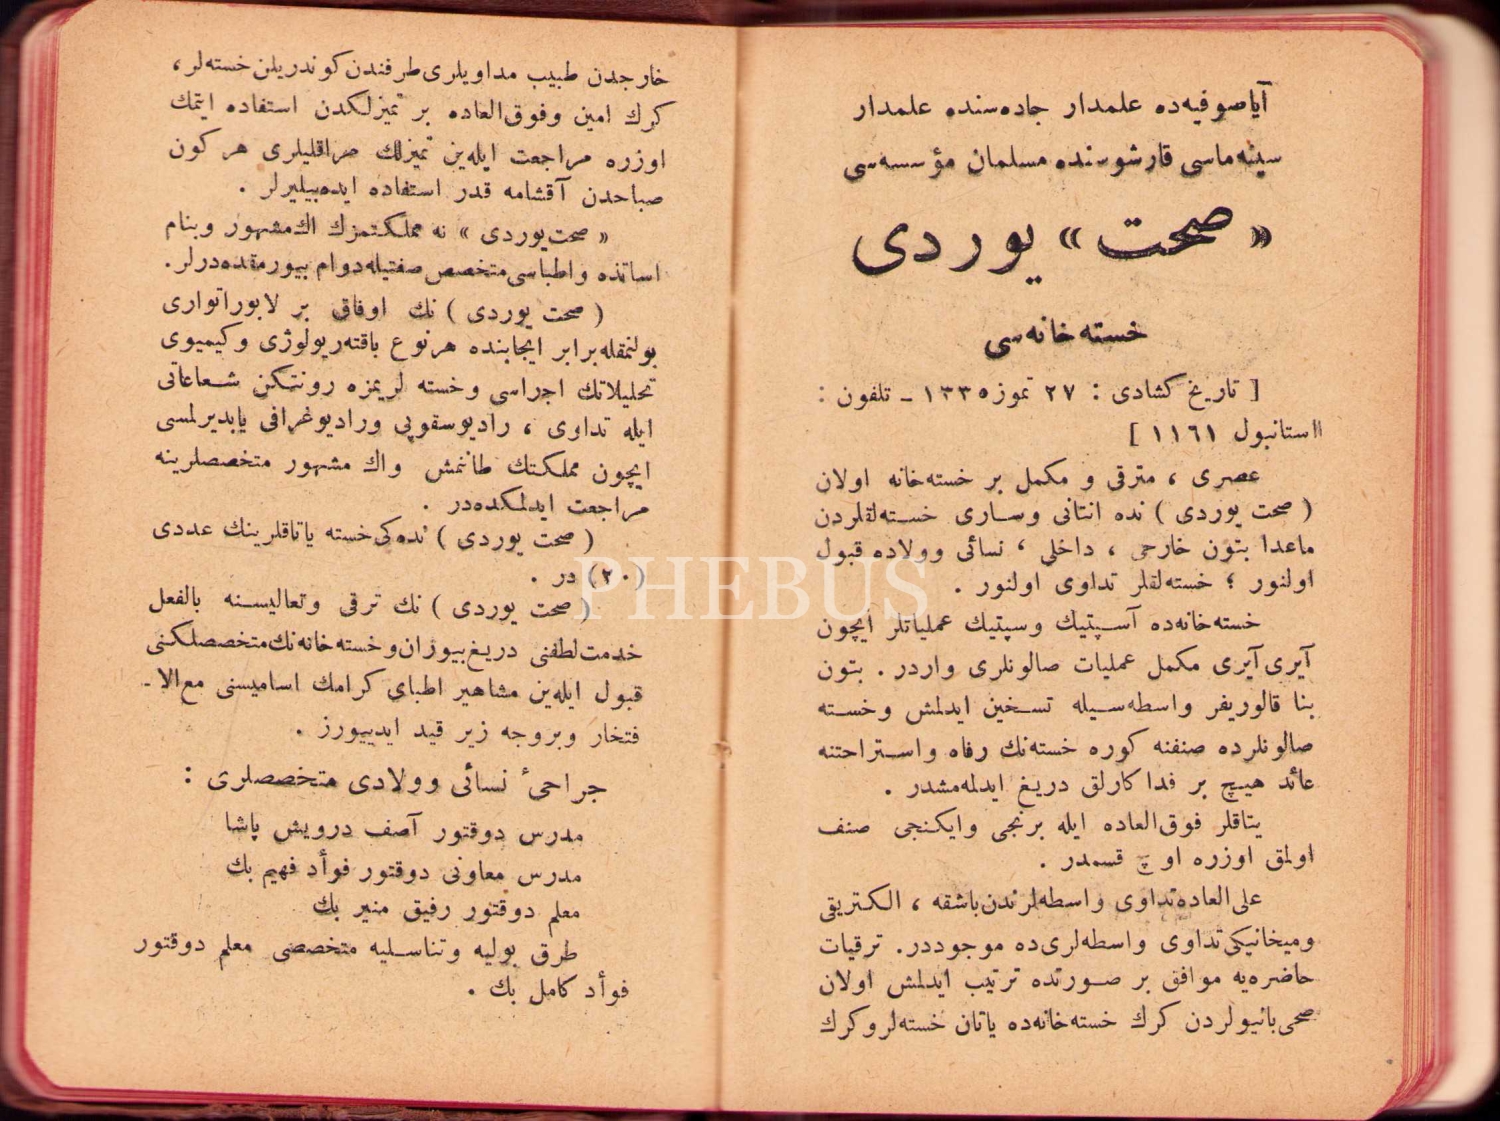 آياصوفيه‌ده علمدار جاده‌سنده علمدار
سينه‌ماسى قارشوسنده مسلمان مؤسسه‌سى
« صحت » يوردى
خسته خانه‌سى
[ تاريخ كشادى : ٢٧ تموز ١٣٣٥ ـ تلفون :
استانبول ١١٦١ ]
عصرى ، مترقى و مكمل بر خسته‌خانه اولان
( صحت يوردى ) نده انتانى وسارى خسته‌لقلردن
ماعدا بتون خارجى ، داخلى ، نسائى وولاده قبول
اولنور ؛ خسته‌لقلر تداوى اولنور .
خسته‌خانه‌ده آسپتيك وسپتيك عملياتلر ايچون
آيرى آيرى مكمل عمليات صالونلرى واردر . بتون
بنا قالوريفر واسطه‌سيله تسخين ايدلمش وخسته
صالونلرده صنفنه كوره خسته‌نك رفاه واستراحتنه
عائد هيچ بر فداكارلق دريغ ايدلمه‌مشدر .
يتاقلر فوق‌العاده ايله برنجى وايكنجى صنف
اولمق اوزره اوچ قسمدر .
على‌العاده تداوى واسطه‌لرندن باشقه ، الكتريقى
وميخانيكى تداوى واسطه‌لرى‌ده موجوددر. ترقيات
حاضره‌يه موافق بر صورتده ترتيب ايدلمش اولان
صحى بانيولردن كرك خسته‌خانه‌ده ياتان خسته‌لر وكرك
خارجدن طبيب مداويلرى طرفندن كوندريلن خسته‌لر ،
كرك امين وفوق‌العاده بر تميزلكدن استفاده ايتمك
اوزره مراجعت ايله‌ين تميزلك مراقليلرى هر كون
صباحدن آقشامه قدر استفاده ايده‌بيليرلر .
« صحت يوردى » نه مملكتمزك اك مشهور وبنام
اساتذه واطباسى متخصص صفتيله دوام بيورمقده‌درلر.
( صحت يوردى ) نك اوفاق بر لابوراتوارى
بولنمقله برابر ايجابنده هرنوع باقته‌ريولوژى وكيميوى
تحليلاتك اجراسى وخسته لريمزه رونتكن شعاعاتى
ايله تداوى ، راديوسقوپى وراديوغرافى ياپديرلمسى
ايچون مملكتك طانمش واك مشهور متخصصلرينه
مراجعت ايدلمكده‌در .
( صحت يوردى ) نده‌كى خسته ياتاقلرينك عددى
(٢٠) در .
( صحت يوردى ) نك ترقى وتعاليسنه بالفعل
خدمت لطفنى دريغ بيوران و خسته خانه‌نك متخصصلكنى
قبول ايله‌ين مشاهير اطباى كرامك اساميسنى مع‌الا‌ـ
فتخار وبروجه زير قيد ايدييورز .
جراحى ٔ نسائى وولادى متخصصلرى :
مدرس دوقتور آصف درويش پاشا
مدرس معاونى دوقتور فوأد فهيم بك
معلم دوقتور رفيق منير بك
طرق بوليه وتناسليه متخصصى معلم دوقتور
فوأد كامل بك .
PHEBUS